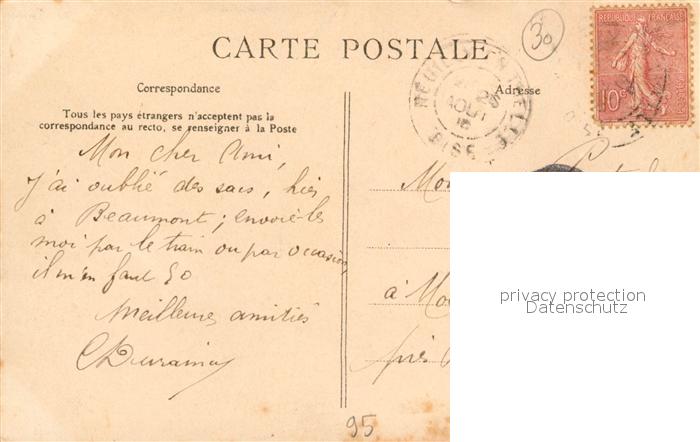 30
CARTE POSTALE
RÉPUBLIQUE FRANÇAISE
10c
25
AOUT
OISE
Correspondance
Adresse
Tous les pays étrangers n'acceptent pas la
correspondance au recto, se renseigner à la Poste
Mon cher Ami,
J'ai oublié des sacs, hier
à Beaumont ; envoie-les
moi par le train ou par occasion,
il m'en faut 50
Meilleures amitiés
à
près
privacy protection
Datenschutz
95